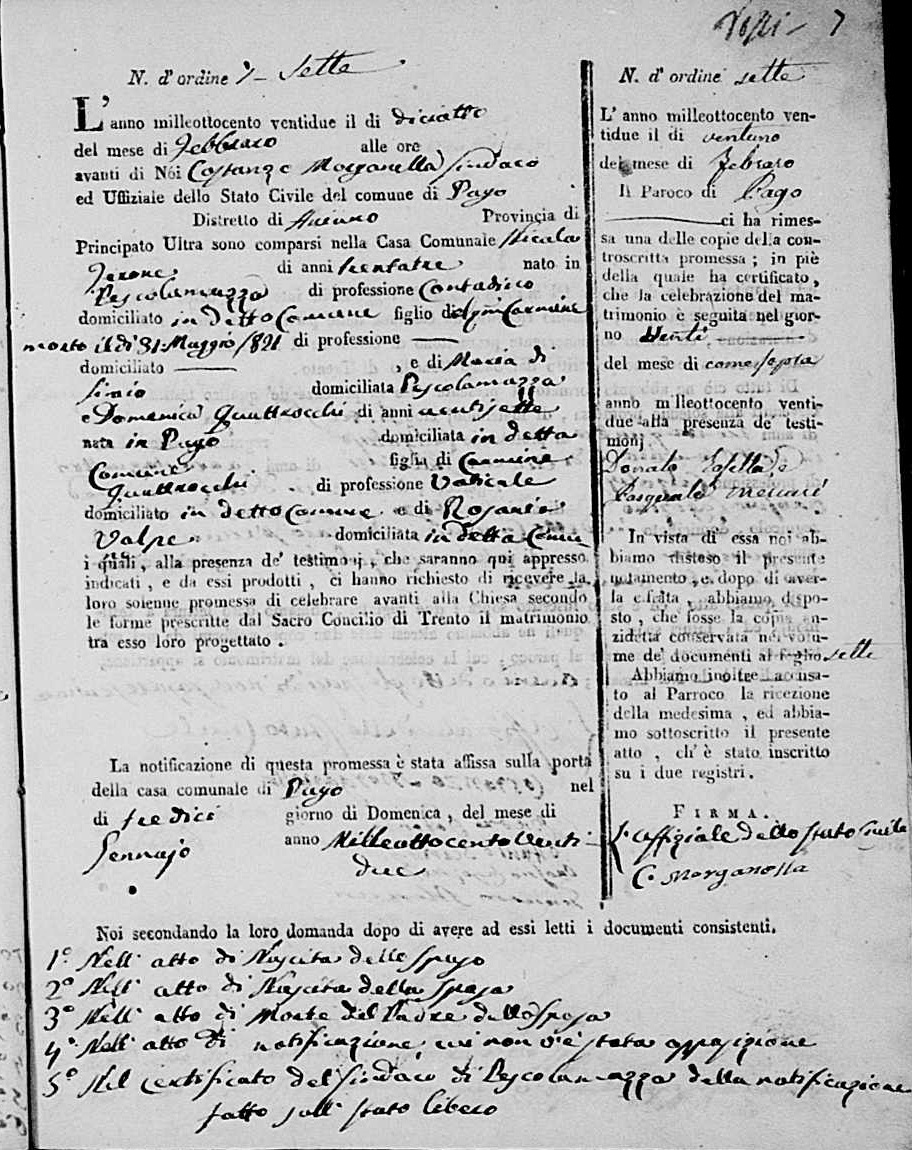 7
N. d'ordine 7 - Sette
L'anno milleottocento ventidue il di diciotto
del mese di Febbraro alle ore
avanti di Noi Costanzo Morganella Sindaco
ed Uffiziale dello Stato Civile del comune di Pago
Distretto di Ariano Provincia di
Principato Ultra sono comparsi nella Casa Comunale Nicola
Ierone di anni trentatre nato in
Pescolamazza di professione Contadino
domiciliato in detto Comune figlio di Carmine
morto il di 31 Maggio 1821 di professione —
domiciliato — , e di Maria di
domiciliata Pescolamazza
e Domenica Quattrocchi di anni ventisette
nata in Pago domiciliata in detta
Comune figlia di Carmine
Quattrocchi di professione Vaticale
domiciliato in detto Comune e di Rosaria
Volpe domiciliata in detta Comune
i quali, alla presenza de' testimonj, che saranno qui appresso
indicati, e da essi prodotti, ci hanno richiesto di ricevere la
loro solenne promessa di celebrare avanti alla Chiesa secondo
le forme prescritte dal Sacro Concilio di Trento il matrimonio
tra esso loro progettato.
La notificazione di questa promessa è stata affissa sulla porta
della casa comunale di Pago nel
di tredici giorno di Domenica, del mese di
Gennajo anno Milleottocento Venti
due
N. d'ordine sette
L'anno milleottocento ven-
tidue il di ventuno
del mese di Febraro
Il Paroco di Pago
ci ha rimes-
sa una delle copie della con-
troscritta promessa; in piè
della quale ha certificato,
che la celebrazione del ma-
trimonio è seguita nel gior-
no Venti
del mese di come sopra
anno milleottocento venti-
due alla presenza de' testi-
monj
Donato
Pasquale
In vista di essa noi ab-
biamo disteso il presente
notamento, e dopo di aver-
la cifrata, abbiamo dispo-
sto, che fosse la copia an-
zidetta conservata nel volu-
me de' documenti al foglio sette
Abbiamo inoltre accusa-
to al Parroco la ricezione
della medesima, ed abbia-
mo sottoscritto il presente
atto, ch'è stato inscritto
su i due registri.
FIRMA.
L'Uffiziale dello Stato Civile
C. Morganella
Noi secondando la loro domanda dopo di avere ad essi letti i documenti consistenti.
1° Nell' atto di Nascita dello Sposo
2° Nell' atto di Nascita della Sposa
3° Nell' atto di Morte del Padre dello Sposo
4° Nell' atto di notificazione cui non v'è stata opposizione
5° Nel certificato del Sindaco di Pescolamazza della notificazione
fatto sull' stato libero